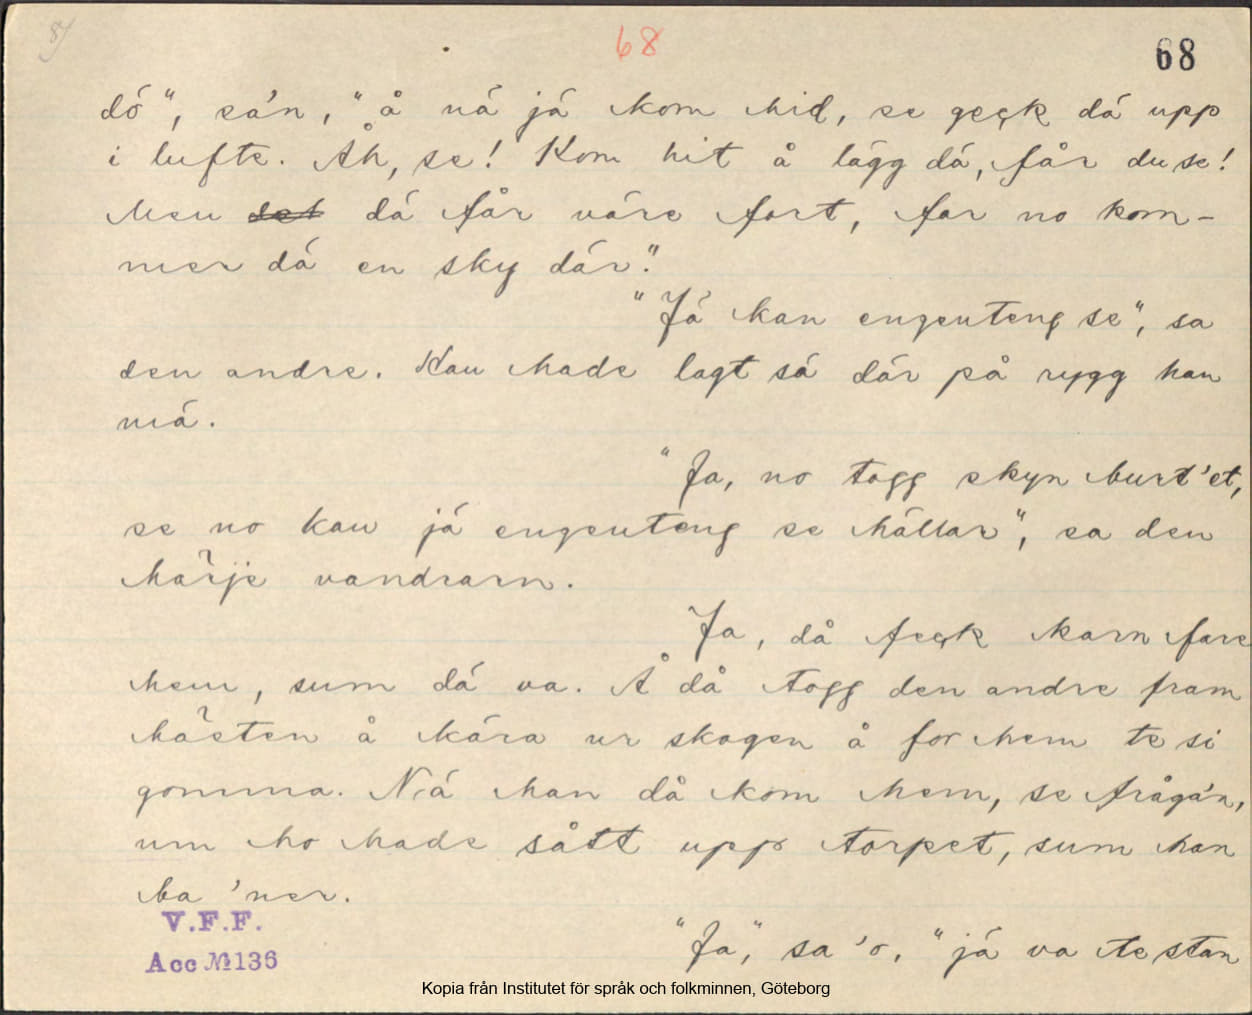 8)
68
68
dö", sa'n, "å nä jä kom hid, se geçk dä upp
i lufte. Åh, se! Kom hit å lägg dä, får du se!
Men det dä får väre fort, far no kom-
mer dä en sky där."
"Jä kan engenteng se", sa
den andre. Han hade lagt sä där på rygg han
mä.
"Ja, no togg skyn burt'et,
se no kan jä engenteng se hällar", sa den
härje vandrarn.
Ja, då feçk karn fare
hem, sum dä va. Å då togg den andre fram
hästen å kära ur skogen å for hem te si
gomma. Nä han då kom hem, se fråga'n,
um ho hade sått upp torpet, sum han
ba 'ner.
"Ja", sa 'o, "jä va te stan
V.F.F.
Acc № 136
Kopia från Institutet för språk och folkminnen, Göteborg